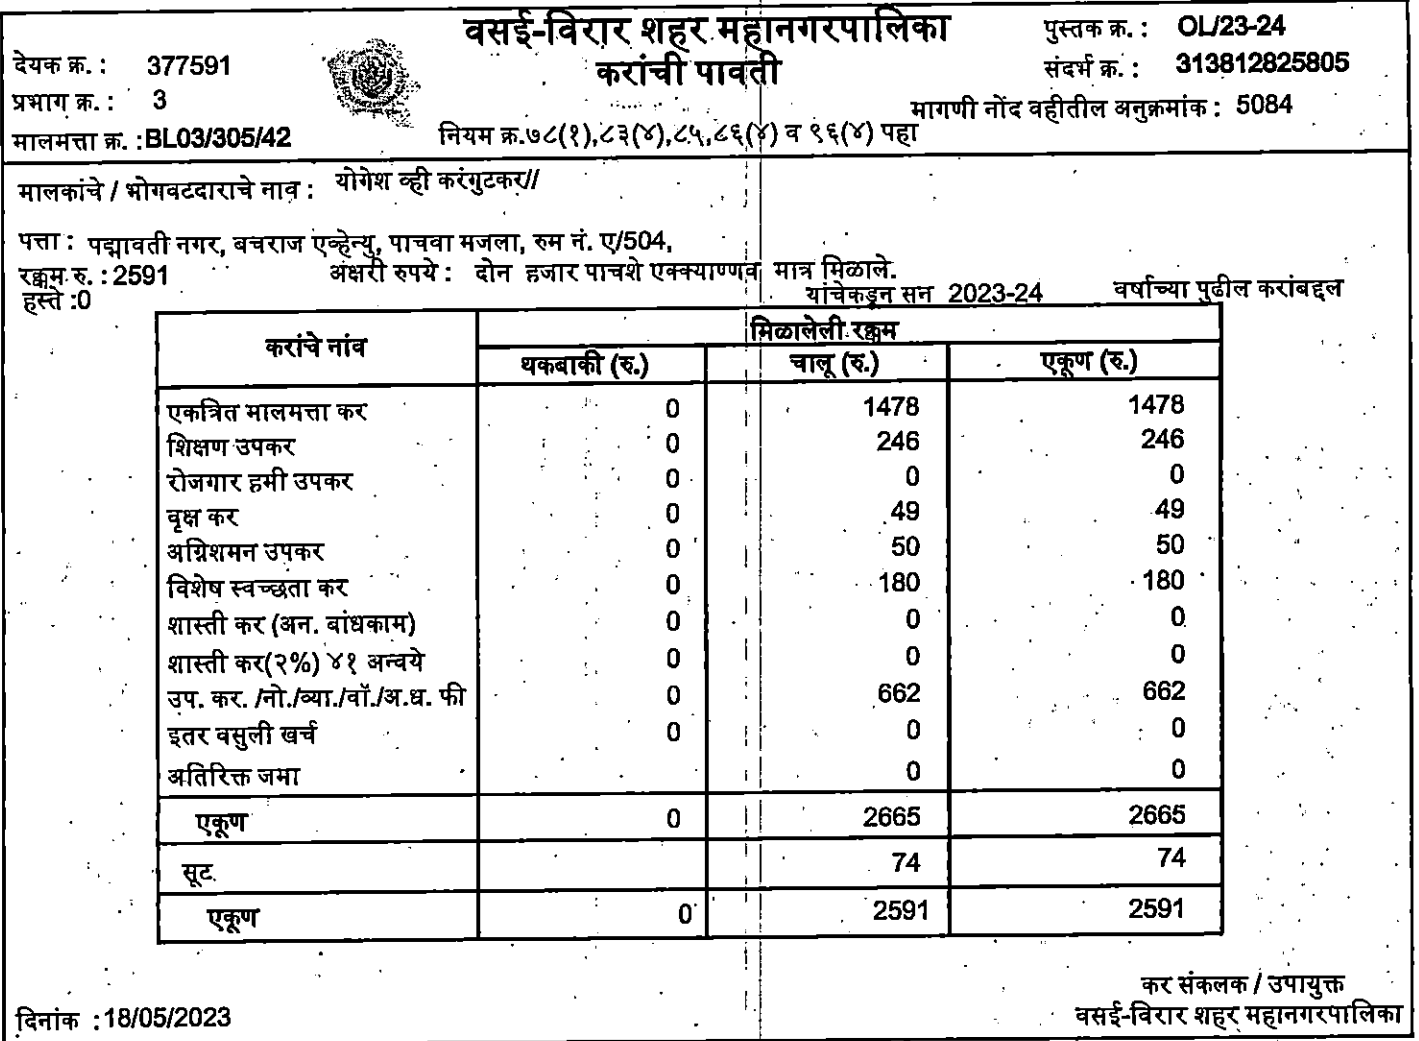 वसई-विरार शहर महानगरपालिका
करांची पावती
पुस्तक क्र. : OL/23-24
देयक क्र. : 377591
संदर्भ क्र. : 313812825805
प्रभाग क्र. : 3
मागणी नोंद वहीतील अनुक्रमांक : 5084
मालमत्ता क्र. :BL03/305/42
नियम क्र.७८(१),८३(४),८५,८६(४) व ९६(४) पहा
मालकांचे / भोगवटदाराचे नाव : योगेश व्ही करंगुटकर//
पत्ता : पद्मावती नगर, बचराज एव्हेन्यु, पाचवा मजला, रुम नं. ए/504,
रक्कम रु. : 2591 अक्षरी रुपये : दोन हजार पाचशे एक्क्याण्णव मात्र मिळाले.
हस्ते :0 यांचेकडून सन 2023-24 वर्षाच्या पुढील करांबद्दल
करांचे नांव मिळालेली रक्कम
थकबाकी (रु.) चालू (रु.) एकूण (रु.)
एकत्रित मालमत्ता कर 0 1478 1478
शिक्षण उपकर 0 246 246
रोजगार हमी उपकर 0 0 0
वृक्ष कर 0 49 49
अग्निशमन उपकर 0 50 50
विशेष स्वच्छता कर 0 180 180
शास्ती कर (अन. बांधकाम) 0 0 0
शास्ती कर(२%) ४१ अन्वये 0 0 0
उप. कर. /नो./व्या./वॉ./अ.ध. फी 0 662 662
इतर वसुली खर्च 0 0 0
अतिरिक्त जमा 0 0
एकूण 0 2665 2665
सूट 74 74
एकूण 0 2591 2591
कर संकलक / उपायुक्त
दिनांक :18/05/2023
वसई-विरार शहर महानगरपालिका